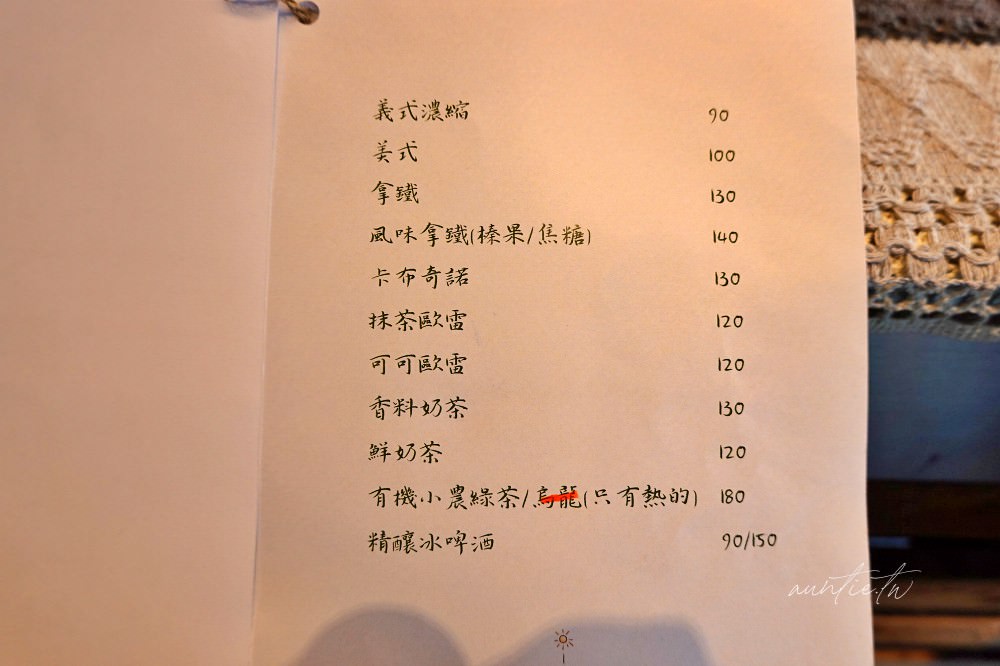 義式濃縮 90
美式 100
拿鐵 130
風味拿鐵(榛果/焦糖) 140
卡布奇諾 130
抹茶歐雷 120
可可歐雷 120
香料奶茶 130
鮮奶茶 120
有機小農綠茶/烏龍(只有熱的) 180
精釀冰啤酒 90/150
auntie.tw